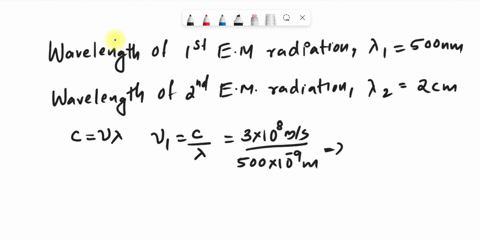 Wavelength of 1st E.M radiation, λ1 = 500nm
Wavelength of 2nd E.M. radiation, λ2 = 2cm
c=νλ ν1 = c/λ = 3×10^8 m/s / 500×10^-9 m →